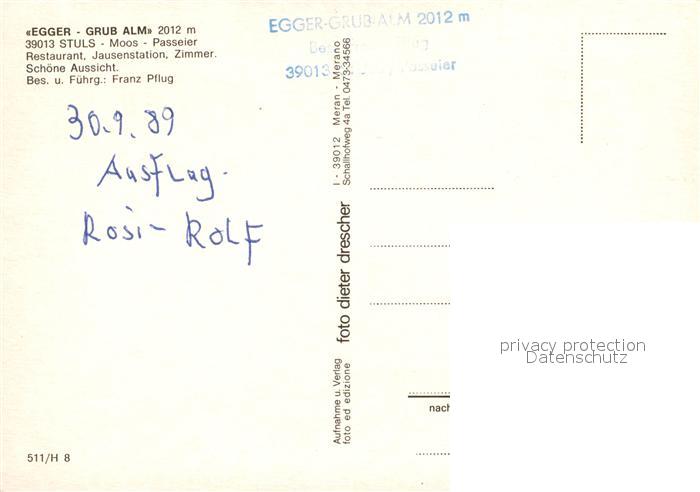 «EGGER - GRUB ALM» 2012 m
39013 STULS - Moos - Passeier
Restaurant, Jausenstation, Zimmer.
Schöne Aussicht.
Bes. u. Führg.: Franz Pflug
EGGER-GRUB-ALM 2012 m
39013
Passeier
30.9.89
Ausflug.
Rosi- Rolf
I - 39012 Meran - Merano
Schallhofweg 4a Tel. 0473-34566
foto dieter drescher
Aufnahme u. Verlag
foto ed edizione
privacy protection
Datenschutz
nach
511/H 8